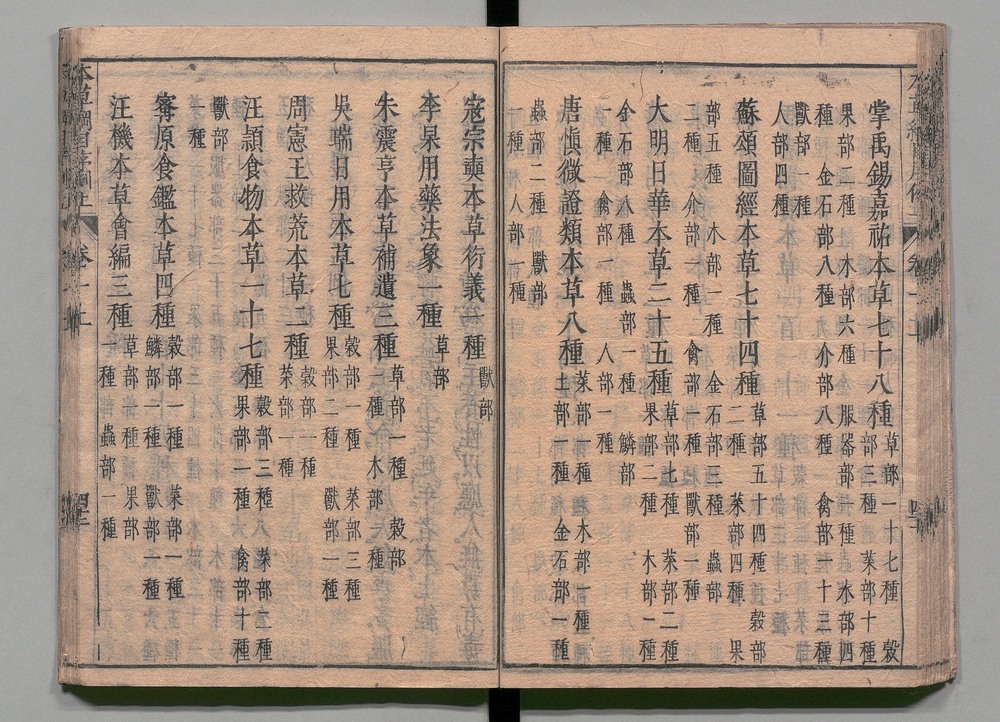 掌禹錫嘉祐本草七十八種草部一十七種 穀部三種 菜部十種
果部二種 木部六種 服器部一種 水部四種 金石部八種 介部八種 禽部十三種
獸部一種 人部四種
蘇頌圖經本草七十四種草部五十四種 穀部二種 菜部四種 果
部五種 木部一種 金石部三種 蟲部二種 介部一種 禽部一種 獸部一種
大明日華本草二十五種草部七種 菜部二種 果部二種 木部一種
金石部八種 蟲部一種 鱗部一種 禽部一種 人部一種
唐慎微證類本草八種菜部一種 木部一種 土部一種 金石部一種
蟲部二種 獸部一種 人部一種
寇宗奭本草衍義一種獸部
李杲用藥法象一種草部
朱震亨本草補遺三種草部一種 穀部一種 木部一種
吳瑞日用本草七種穀部一種 菜部三種 果部二種 獸部一種
周憲王救荒本草二種穀部一種 菜部一種
汪頴食物本草一十七種穀部三種 菜部二種 果部一種 禽部十種
獸部一種
寗原食鑑本草四種穀部一種 菜部一種 鱗部一種 獸部一種
汪機本草會編三種草部一種 果部一種 蟲部一種